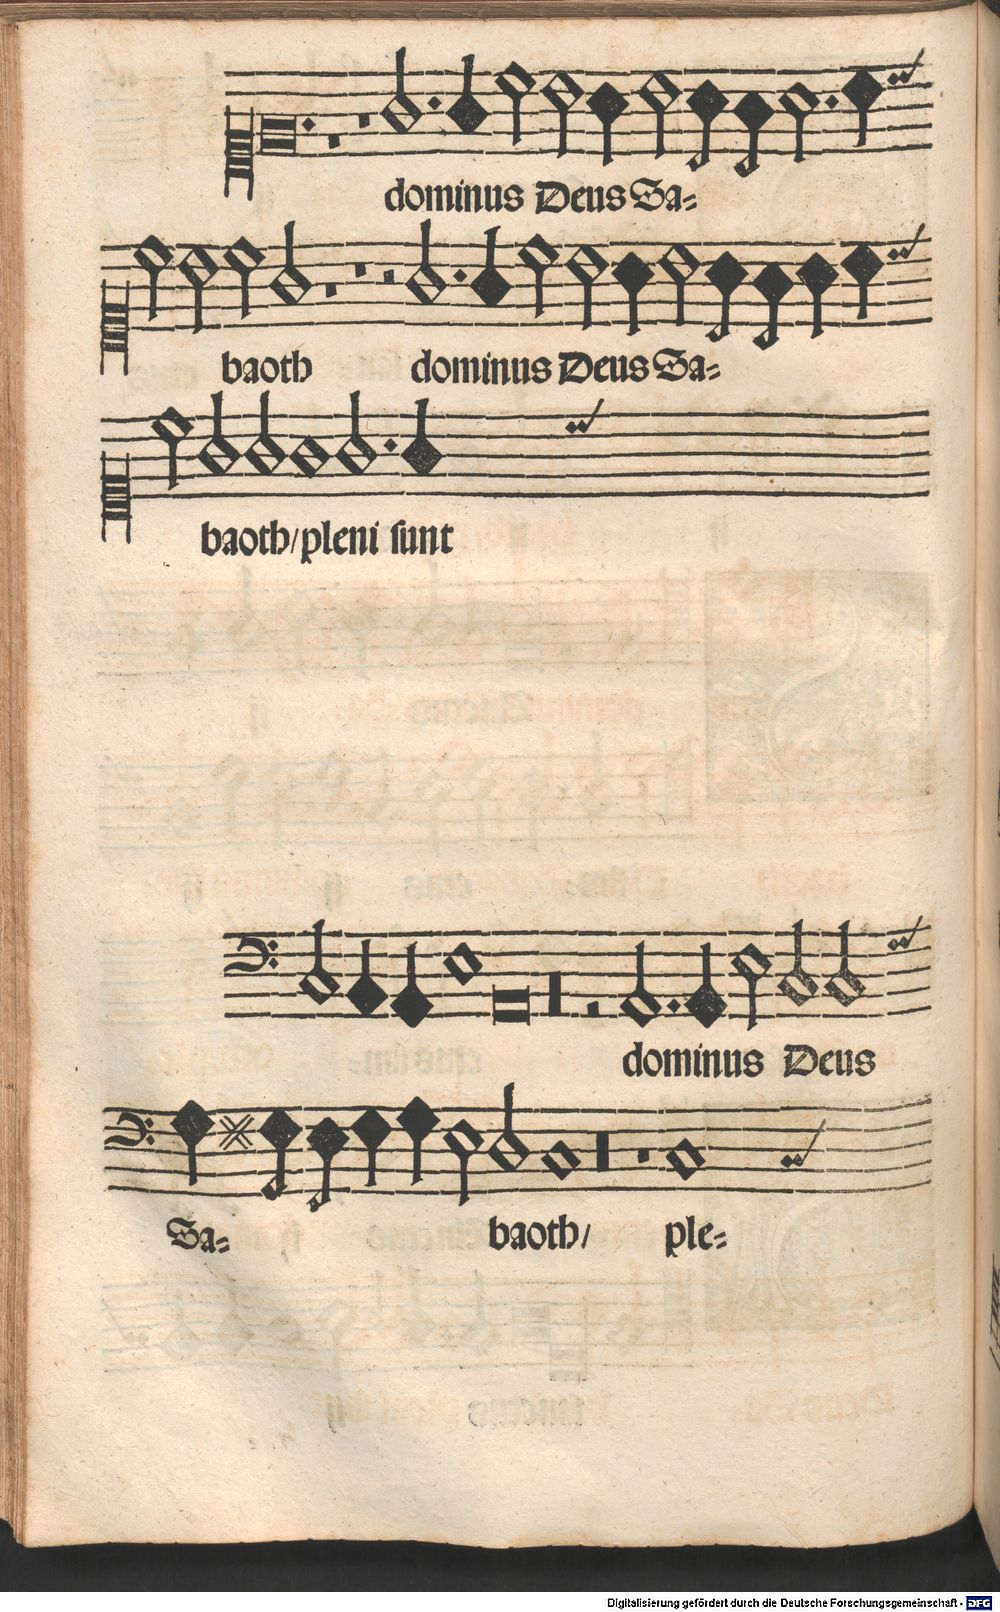 dominus Deus Sa⸗
baoth dominus Deus Sa⸗
baoth/pleni sunt
dominus Deus
Sa⸗ baoth/ ple⸗
Digitalisierung gefördert durch die Deutsche Forschungsgemeinschaft - DFG